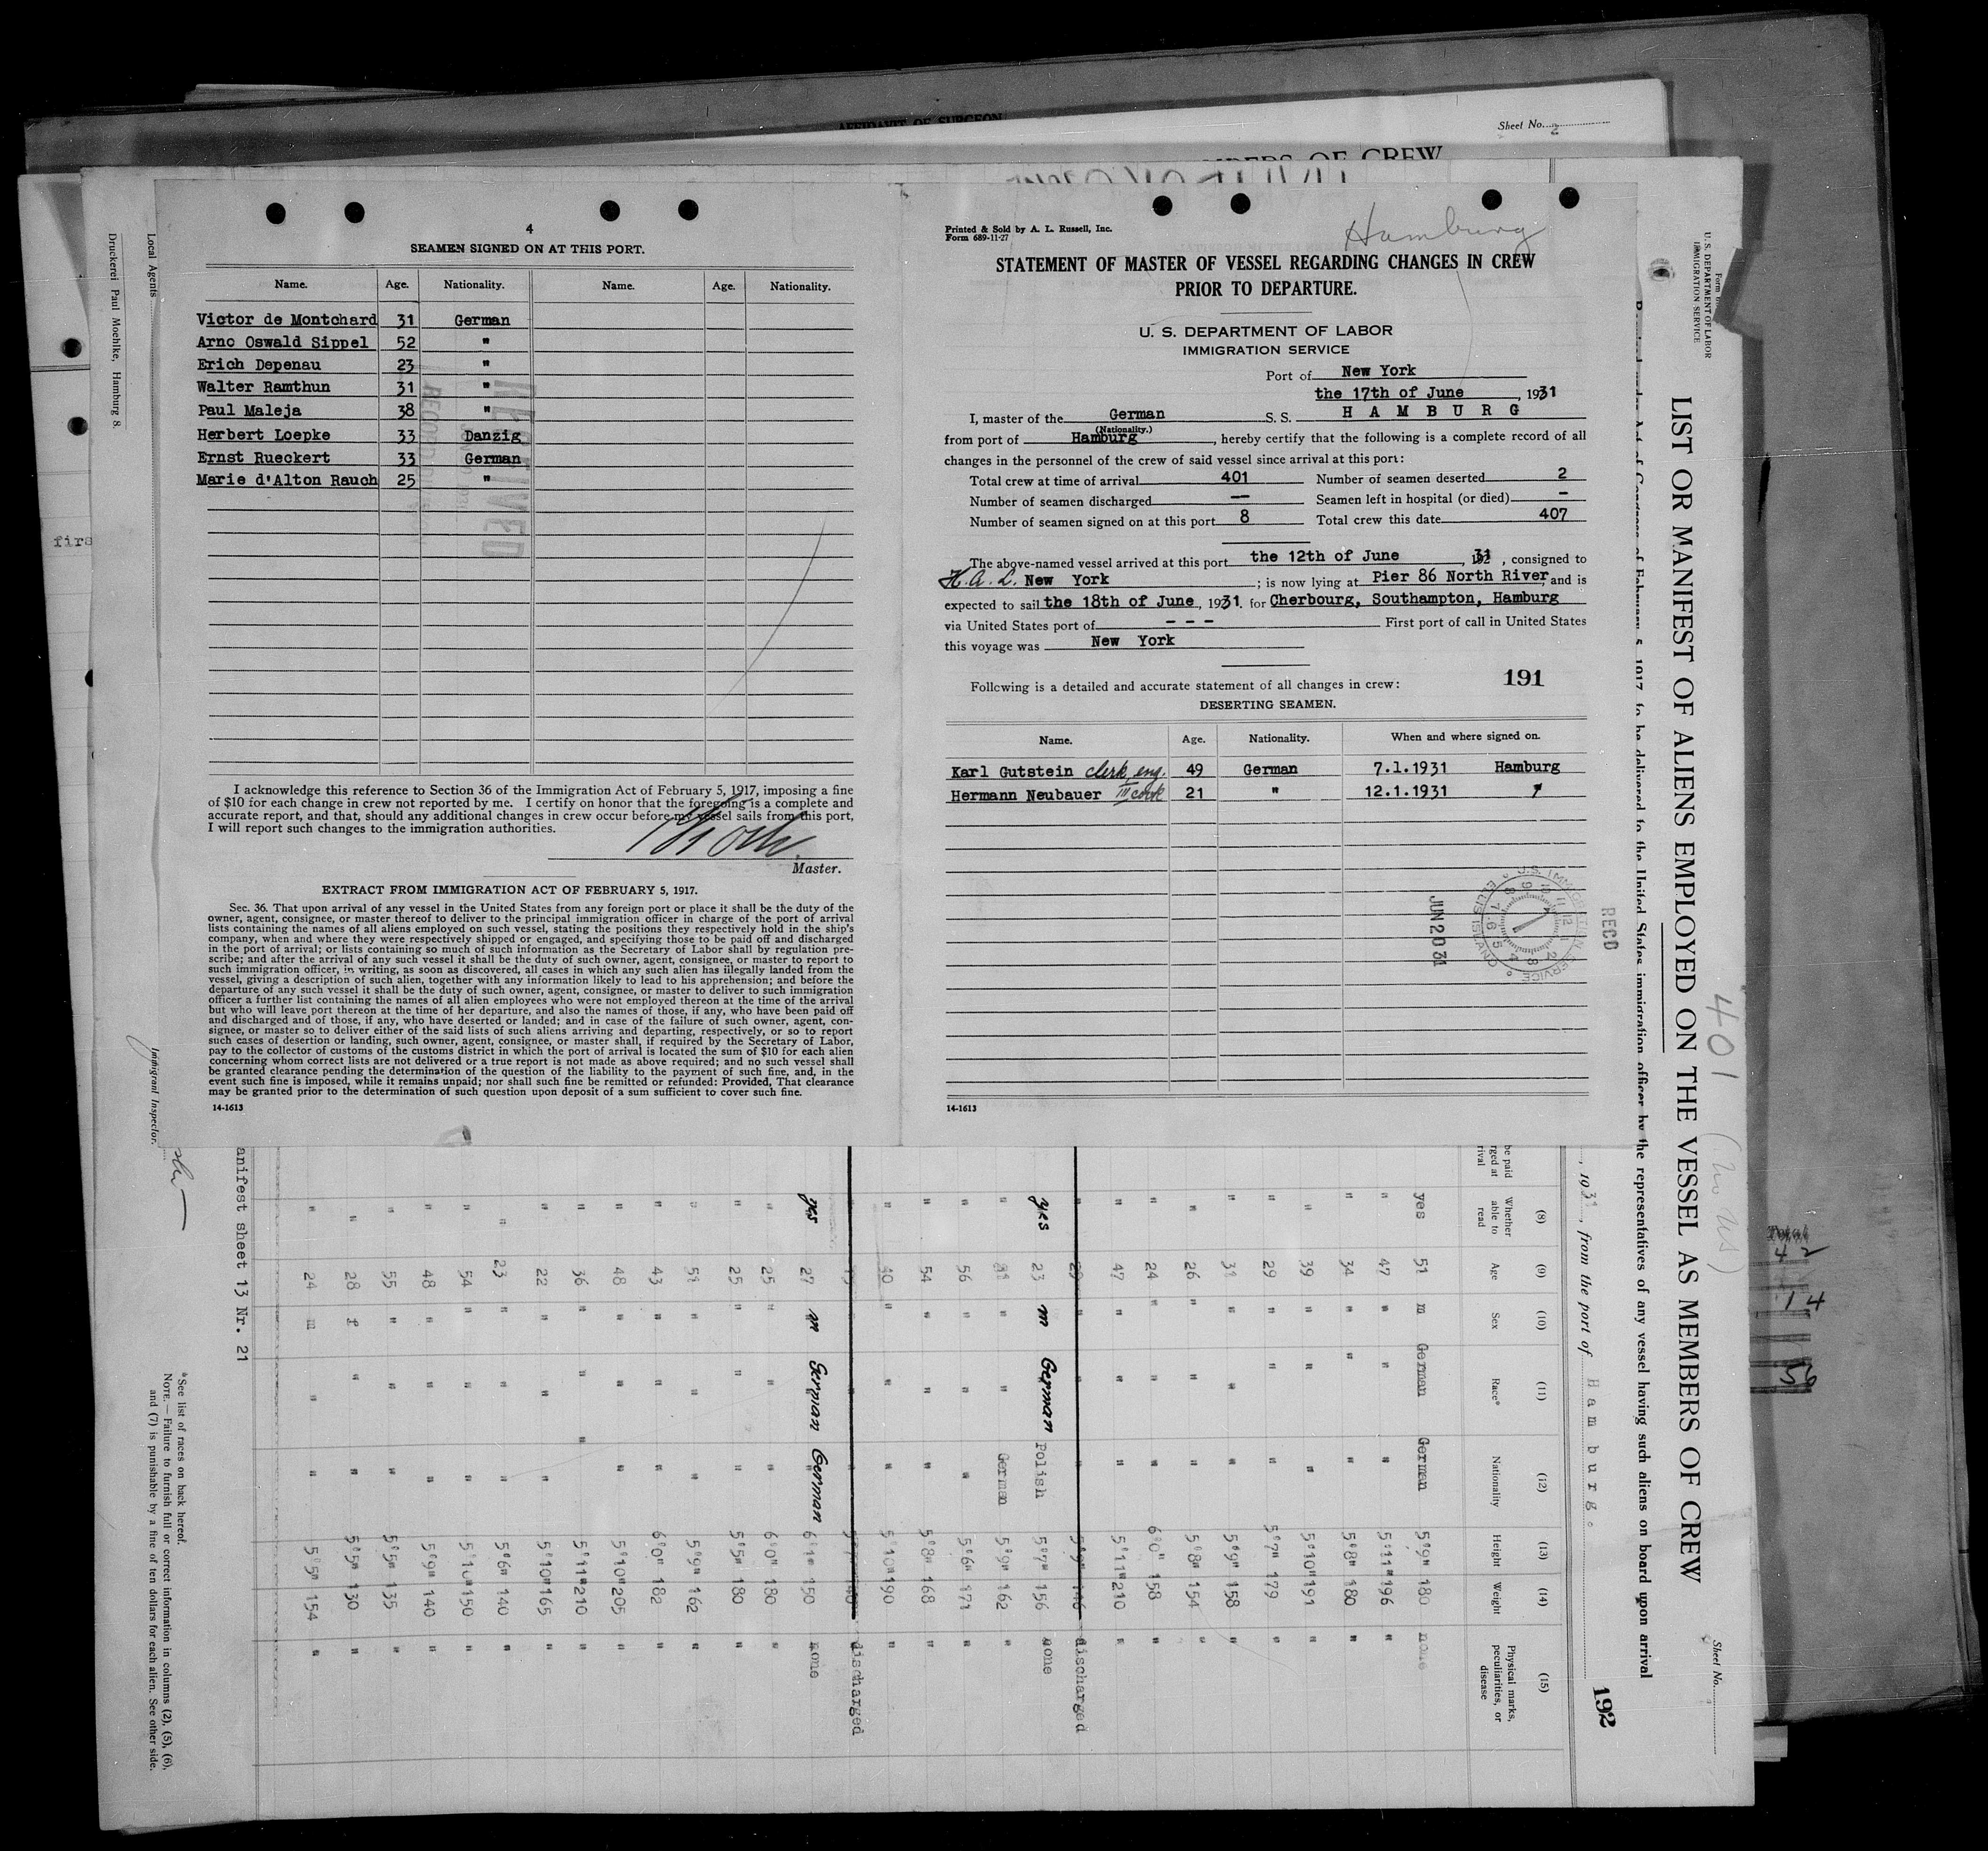 4
SEAMEN SIGNED ON AT THIS PORT.
Name. Age. Nationality. Name. Age. Nationality.
Victor de Montchard 31 German
Arno Oswald Sippel 52 "
Erich Depenau 23 "
Walter Ramthun 31 "
Paul Maleja 38 "
Herbert Loepke 33 Danzig
Ernst Rueckert 33 German
Marie d'Alton Rauch 25 "
RECEIVED
I acknowledge this reference to Section 36 of the Immigration Act of February 5, 1917, imposing a fine
of $10 for each change in crew not reported by me. I certify on honor that the foregoing is a complete and
accurate report, and that, should any additional changes in crew occur before my vessel sails from this port,
I will report such changes to the immigration authorities.
Master.
EXTRACT FROM IMMIGRATION ACT OF FEBRUARY 5, 1917.
Sec. 36. That upon arrival of any vessel in the United States from any foreign port or place it shall be the duty of the
owner, agent, consignee, or master thereof to deliver to the principal immigration officer in charge of the port of arrival
lists containing the names of all aliens employed on such vessel, stating the positions they respectively hold in the ship's
company, when and where they were respectively shipped or engaged, and specifying those to be paid off and discharged
in the port of arrival; or lists containing so much of such information as the Secretary of Labor shall by regulation pre-
scribe; and after the arrival of any such vessel it shall be the duty of such owner, agent, consignee, or master to report to
such immigration officer, in writing, as soon as discovered, all cases in which any such alien has illegally landed from the
vessel, giving a description of such alien, together with any information likely to lead to his apprehension; and before the
departure of any such vessel it shall be the duty of such owner, agent, consignee, or master to deliver to such immigration
officer a further list containing the names of all alien employees who were not employed thereon at the time of the arrival
but who will leave port thereon at the time of her departure, and also the names of those, if any, who have been paid off
and discharged and of those, if any, who have deserted or landed; and in case of the failure of such owner, agent, con-
signee, or master so to deliver either of the said lists of such aliens arriving and departing, respectively, or so to report
such cases of desertion or landing, such owner, agent, consignee, or master shall, if required by the Secretary of Labor,
pay to the collector of customs of the customs district in which the port of arrival is located the sum of $10 for each alien
concerning whom correct lists are not delivered or a true report is not made as above required; and no such vessel shall
be granted clearance pending the determination of the question of the liability to the payment of such fine, and, in the
event such fine is imposed, while it remains unpaid; nor shall such fine be remitted or refunded: Provided, That clearance
may be granted prior to the determination of such question upon deposit of a sum sufficient to cover such fine.
14-1613
Printed & Sold by A. L. Russell, Inc.
Form 689-11-27
Hamburg
STATEMENT OF MASTER OF VESSEL REGARDING CHANGES IN CREW
PRIOR TO DEPARTURE.
U. S. DEPARTMENT OF LABOR
IMMIGRATION SERVICE
Port of New York
the 17th of June, 1931
I, master of the German S. S. H A M B U R G
(Nationality.)
from port of Hamburg, hereby certify that the following is a complete record of all
changes in the personnel of the crew of said vessel since arrival at this port:
Total crew at time of arrival 401 Number of seamen deserted 2
Number of seamen discharged — Seamen left in hospital (or died) -
Number of seamen signed on at this port 8 Total crew this date 407
The above-named vessel arrived at this port the 12th of June, 31, consigned to
H. A. L. New York; is now lying at Pier 86 North River, and is
expected to sail the 18th of June, 1931. for Cherbourg, Southampton, Hamburg
via United States port of - - - First port of call in United States
this voyage was New York
191
Following is a detailed and accurate statement of all changes in crew:
DESERTING SEAMEN.
Name. Age. Nationality. When and where signed on.
Karl Gutstein clerk, eng. 49 German 7.1.1931 Hamburg
Hermann Neubauer III cook 21 " 12.1.1931 "
U.S. IMMIGRATION SERVICE ELLIS ISLAND
JUN 20 31
RECD
14-1613
AFFIDAVIT OF SURGEON
Sheet No. 2
MEMBERS OF CREW
U. S. DEPARTMENT OF LABOR
IMMIGRATION SERVICE
LIST OR MANIFEST OF ALIENS EMPLOYED ON THE VESSEL AS MEMBERS OF CREW
401
Sheet No.
to be delivered to the United States immigration officer by the representatives of any vessel having such aliens on board upon arrival
, 1931, from the port of H a m b u r g.
192
(8) (9) (10) (11) (12) (13) (14) (15)
Whether able to read Age Sex Race* Nationality Height Weight Physical marks, peculiarities, or disease
yes 51 m German German 5'9" 180 none
" 47 " " " 5'11" 196 "
" 34 " " " 5'8" 180 "
" 39 " " " 5'10" 191 "
" 29 " " " 5'7" 179 "
" 31 " " " 5'9" 158 "
" 26 " " " 5'8" 154 "
" 24 " " " 6'0" 158 "
" 47 " " " 5'11" 210 "
" 29 " " " 5'9" 146 discharged
yes 23 m German Polish 5'7" 156 none
" 31 " " German 5'9" 162 "
" 56 " " " 5'6" 171 "
" 54 " " " 5'8" 168 "
" 40 " " " 5'10" 190 "
discharged
yes 27 m German German 6'1" 150 none
" 25 " " " 6'0" 180 "
" 25 " " " 5'5" 180 "
" 51 " " " 5'9" 162 "
" 43 " " " 6'0" 182 "
" 48 " " " 5'10" 205 "
" 36 " " " 5'11" 210 "
" 22 " " " 5'10" 165 "
" 23 " " " 5'6" 140 "
" 54 " " " 5'10" 150 "
" 48 " " " 5'9" 140 "
" 55 " " " 5'5" 135 "
" 28 f " " 5'5" 130 "
" 24 m " " 5'5" 154 "
anifest sheet 13 Nr. 21
*See list of races on back hereof.
NOTE.—Failure to furnish full or correct information in columns (2), (5), (6),
and (7) is punishable by a fine of ten dollars for each alien. See other side.
Immigrant Inspector.
Local Agents
Druckerei Paul Moehlke, Hamburg 8.
firs
42
14
56